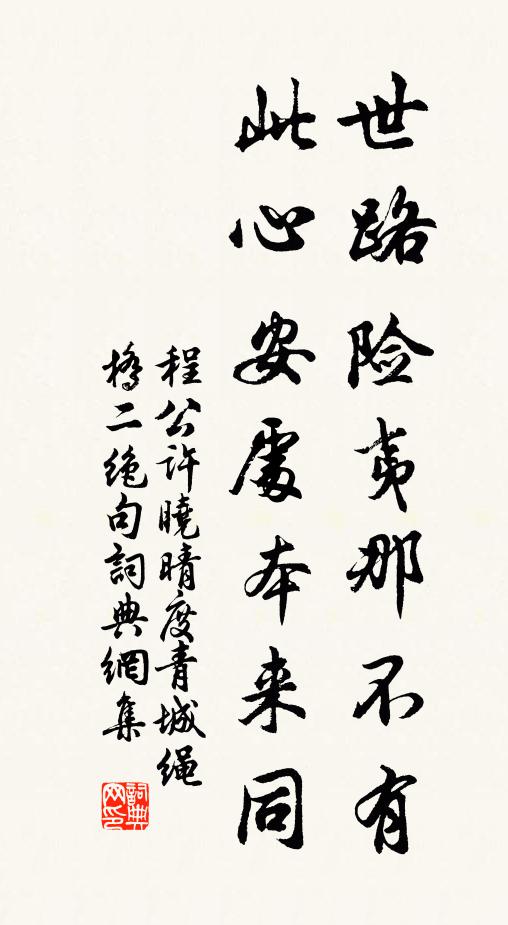 世路险夷那不有
此心安處本来同
程公许曉晴度青城绳
橋二绝句詞典網集
詞典网印